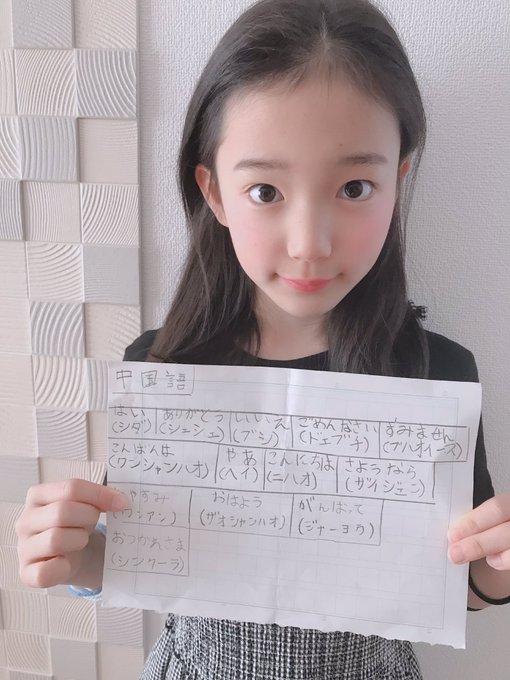 中国語
はい ありがとう いいえ ごめんなさい すみません
(シダ) (シェシェ) (ブシ) (ドェブチ) (ブハオイース)
こんばんは やあ こんにちは さようなら
(ワンシャンハオ) (ヘイ) (ニハオ) (ザイジェン)
やすみ おはよう がんばって
(ワンアン) (ザオシャンハオ) (ジャーヨウ)
おつかれさま
(シンクーラ)